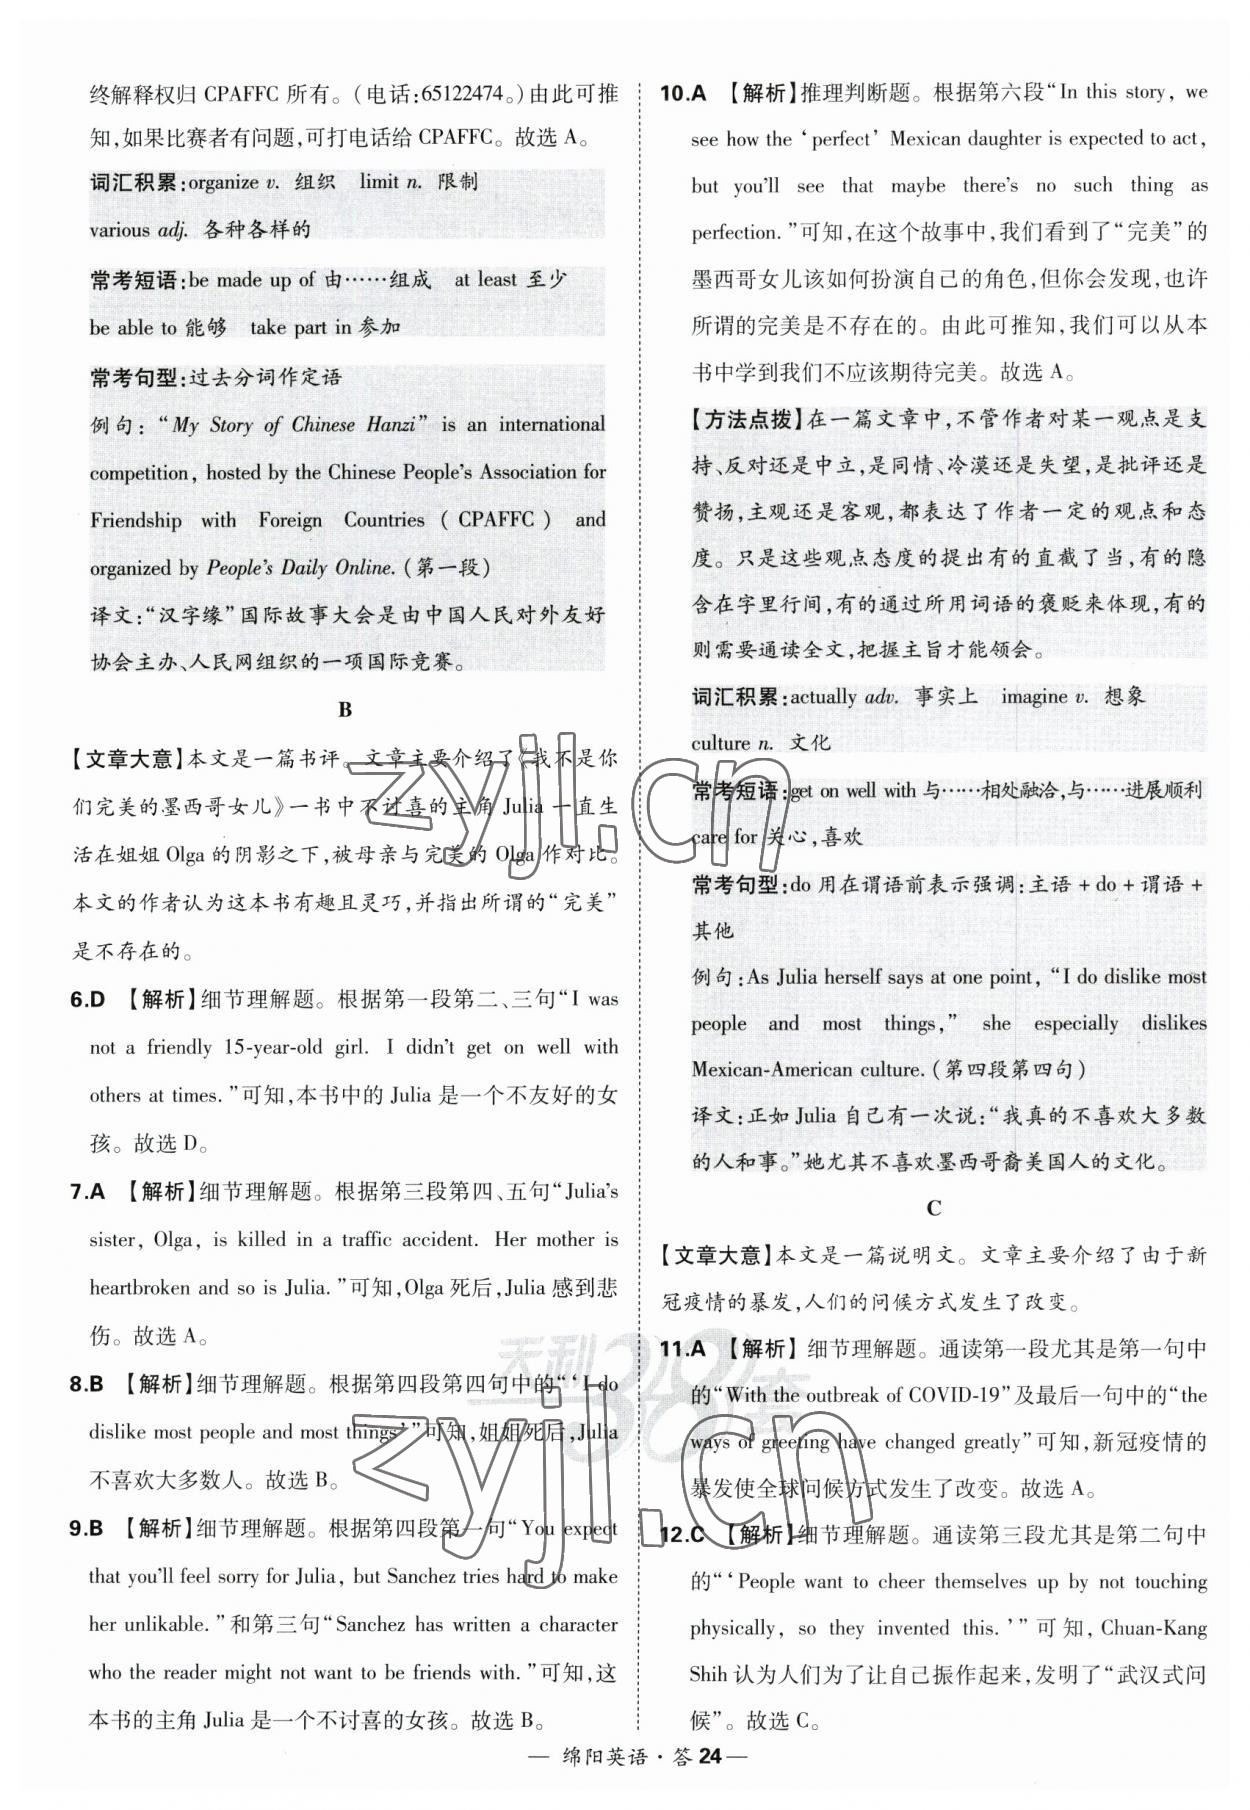 终解释权归 CPAFFC 所有。(电话:65122474。)由此可推
知,如果比赛者有问题,可打电话给 CPAFFC。故选 A。
词汇积累:organize v. 组织 limit n. 限制
various adj. 各种各样的
常考短语:be made up of 由……组成 at least 至少
be able to 能够 take part in 参加
常考句型:过去分词作定语
例句:“My Story of Chinese Hanzi” is an international
competition, hosted by the Chinese People's Association for
Friendship with Foreign Countries ( CPAFFC ) and
organized by People's Daily Online. (第一段)
译文:“汉字缘”国际故事大会是由中国人民对外友好
协会主办、人民网组织的一项国际竞赛。
B
【文章大意】本文是一篇书评。文章主要介绍了《我不是你
们完美的墨西哥女儿》一书中不讨喜的主角 Julia 一直生
活在姐姐 Olga 的阴影之下,被母亲与完美的 Olga 作对比。
本文的作者认为这本书有趣且灵巧,并指出所谓的“完美”
是不存在的。
6.D 【解析】细节理解题。根据第一段第二、三句“I was
not a friendly 15-year-old girl. I didn't get on well with
others at times.”可知,本书中的 Julia 是一个不友好的女
孩。故选 D。
7.A 【解析】细节理解题。根据第三段第四、五句“Julia's
sister, Olga, is killed in a traffic accident. Her mother is
heartbroken and so is Julia.”可知,Olga 死后,Julia 感到悲
伤。故选 A。
8.B 【解析】细节理解题。根据第四段第四句中的“‘I do
dislike most people and most things’”可知,姐姐死后,Julia
不喜欢大多数人。故选 B。
9.B 【解析】细节理解题。根据第四段第一句“You expect
that you'll feel sorry for Julia, but Sanchez tries hard to make
her unlikable.”和第三句“Sanchez has written a character
who the reader might not want to be friends with.”可知,这
本书的主角 Julia 是一个不讨喜的女孩。故选 B。
10.A 【解析】推理判断题。根据第六段“In this story, we
see how the ‘perfect’ Mexican daughter is expected to act,
but you'll see that maybe there's no such thing as
perfection.”可知,在这个故事中,我们看到了“完美”的
墨西哥女儿该如何扮演自己的角色,但你会发现,也许
所谓的完美是不存在的。由此可推知,我们可以从本
书中学到我们不应该期待完美。故选 A。
【方法点拨】在一篇文章中,不管作者对某一观点是支
持、反对还是中立,是同情、冷漠还是失望,是批评还是
赞扬,主观还是客观,都表达了作者一定的观点和态
度。只是这些观点态度的提出有的直截了当,有的隐
含在字里行间,有的通过所用词语的褒贬来体现,有的
则需要通读全文,把握主旨才能领会。
词汇积累:actually adv. 事实上 imagine v. 想象
culture n. 文化
常考短语:get on well with 与……相处融洽,与……进展顺利
care for 关心,喜欢
常考句型:do 用在谓语前表示强调:主语 + do + 谓语 +
其他
例句:As Julia herself says at one point, “I do dislike most
people and most things,” she especially dislikes
Mexican-American culture. (第四段第四句)
译文:正如 Julia 自己有一次说:“我真的不喜欢大多数
的人和事。”她尤其不喜欢墨西哥裔美国人的文化。
C
【文章大意】本文是一篇说明文。文章主要介绍了由于新
冠疫情的暴发,人们的问候方式发生了改变。
11.A 【解析】细节理解题。通读第一段尤其是第一句中
的“With the outbreak of COVID-19”及最后一句中的“the
ways of greeting have changed greatly”可知,新冠疫情的
暴发使全球问候方式发生了改变。故选 A。
12.C 【解析】细节理解题。通读第三段尤其是第二句中
的“‘People want to cheer themselves up by not touching
physically, so they invented this.’”可知, Chuan-Kang
Shih 认为人们为了让自己振作起来,发明了“武汉式问
候”。故选 C。
— 绵阳英语·答 24 —
天利38套
zyjl.cn
zyjl.cn